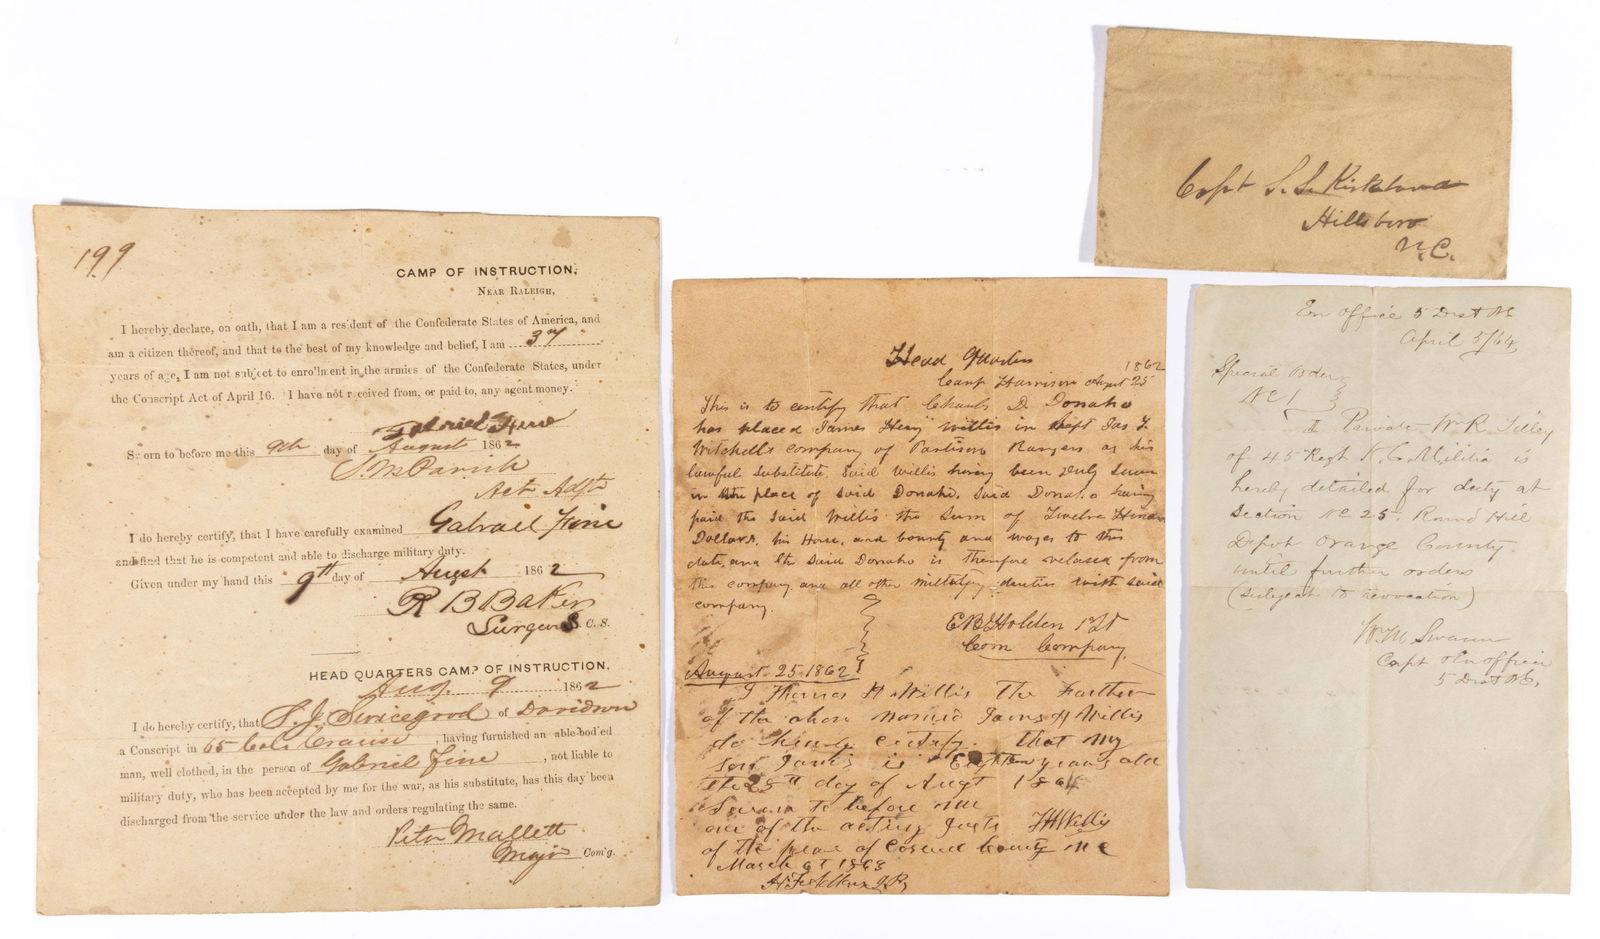 199
CAMP OF INSTRUCTION,
NEAR RALEIGH,
I hereby declare, on oath, that I am a resident of the Confederate States of America, and
am a citizen thereof, and that to the best of my knowledge and belief, I am 37
years of age, I am not subject to enrollment in the armies of the Confederate States, under
the Conscript Act of April 16. I have not received from, or paid to, any agent money.
Gabriel Fine
Sworn to before me this 9th day of August 1862
J. M. Parrish
Act Adjt
I do hereby certify, that I have carefully examined Gabriel Fine
and find that he is competent and able to discharge military duty.
Given under my hand this 9th day of August 1862
R B Baker
Surgeon C. S.
HEAD QUARTERS CAMP OF INSTRUCTION.
Aug. 9 1862
I do hereby certify, that of Davidson
a Conscript in 65 , having furnished an able-bodied
man, well clothed, in the person of Gabriel Fine , not liable to
military duty, who has been accepted by me for the war, as his substitute, has this day been
discharged from the service under the law and orders regulating the same.
Peter Mallett
Major Com'g.
Head Quarters
Camp Harrison August 25 1862
This is to certify that Charels D. Donaho
has placed James Henry Willis in Capt Jas. Y.
Mitchells company of Partison Rangers as his
lawful substitute. Said Willis having been duly sworn
in the place of Said Donaho. Said Donaho having
paid the Said Willis the Sum of Twelve Hundred
Dollars, his Horse, and bounty and wages to this
date, and the Said Donaho is therefore released from
the company and all other military duties with said
company.
E B Holden 1st Lt
Com Company
August 25 1862
I Thomas H Willis The Farther
of the above named James H Willis
do hereby certify that my
Son James is Eighteen years old
the 25th day of Augt 186
Sworn to before me
one of the acting Justs T H Willis
of the peace of Caswell County N C
March 9th 1863
J.P.
Capt S. S. Kirkland
Hillsboro
N.C.
En office 5 Dist NC
April 5/64
Special Order
No 1
Private W. R. Tilley
of 45 Regt N. C. Militia is
hereby detailed for duty at
Section No 25. Round Hill
Depot Orange County
until further orders
(subject to revocation)
Wm M Swann
Capt & En officer
5 Dist N.C.